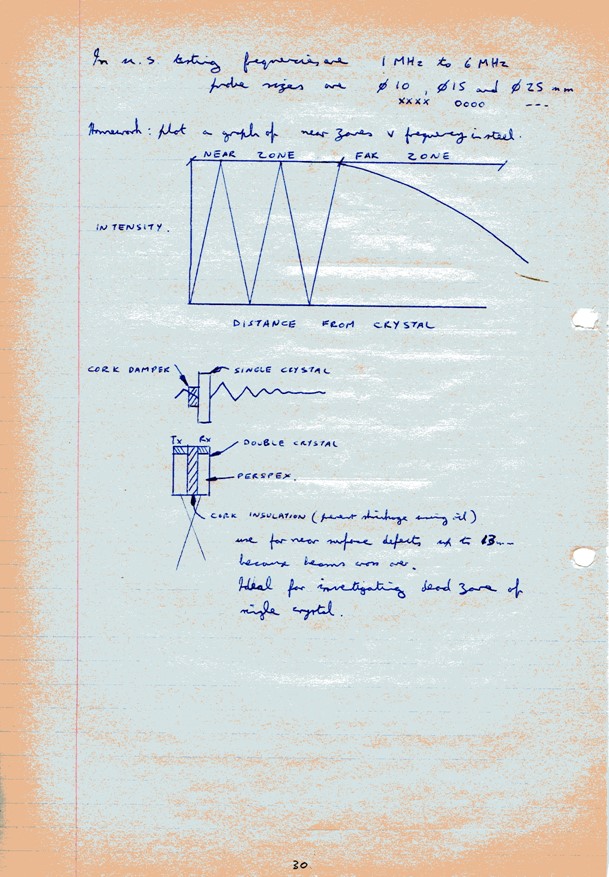 In u.s. testing frequencies are 1 MHz to 6 MHz
probe sizes are ø 10 , ø 15 and ø 25 mm
xxxx oooo ---
Homework: plot a graph of near zones v frequency in steel.
NEAR ZONE FAR ZONE
INTENSITY.
DISTANCE FROM CRYSTAL
CORK DAMPER SINGLE CRYSTAL
Tx Rx DOUBLE CRYSTAL
PERSPEX.
CORK INSULATION (prevent shrinkage using oil)
use for near surface defects up to 13mm
because beams cross over.
Ideal for investigating dead zone of
single crystal.
30